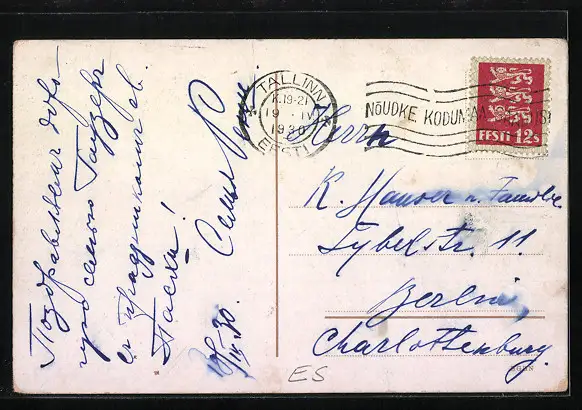 Поздравляем доро-
гую семью Гаузер
с праздником св.
Пасхи!
Семья
18/IV 30.
TALLINN
K.19-21
19. IV
1930
EESTI
NÕUDKE KODUMAA
EESTI 12s
Herrn
K. Hauser u. Familie
Sybelstr. 11
Berlin,
Charlottenburg.
ES